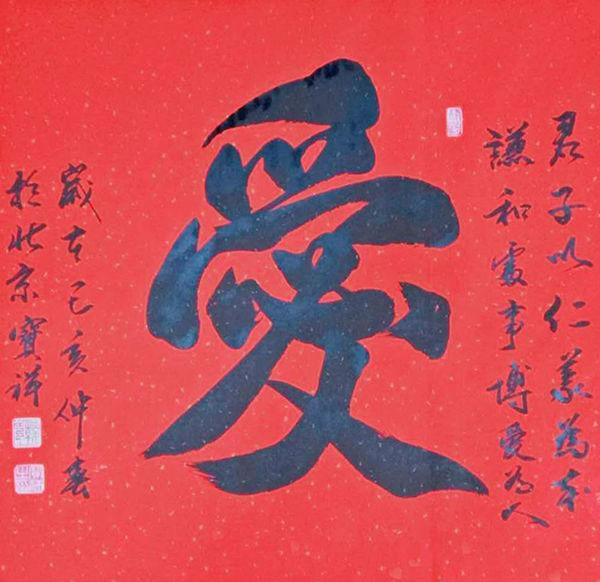 君子以仁義為本
謙和處事博愛為人
愛
歲在己亥仲春
於北京寶祥